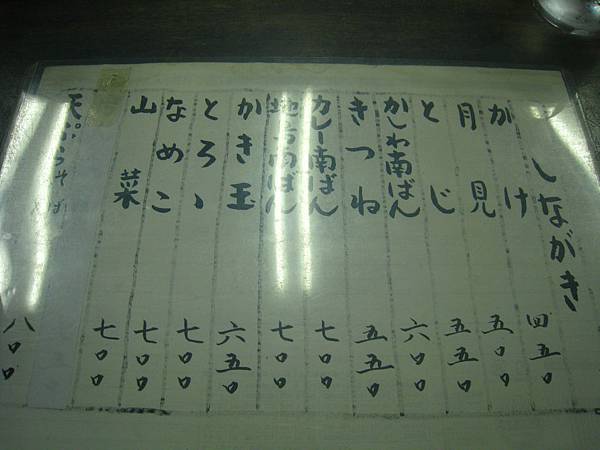 しながき
かけ 四五〇
月見 五〇〇
とじ 五五〇
かしわ南ばん 六〇〇
きつね 五五〇
カレー南ばん 七〇〇
南ばん 七〇〇
かき玉 六五〇
とろゝ 七〇〇
なめこ 七〇〇
山菜 七〇〇
天ぷらそば 八〇〇